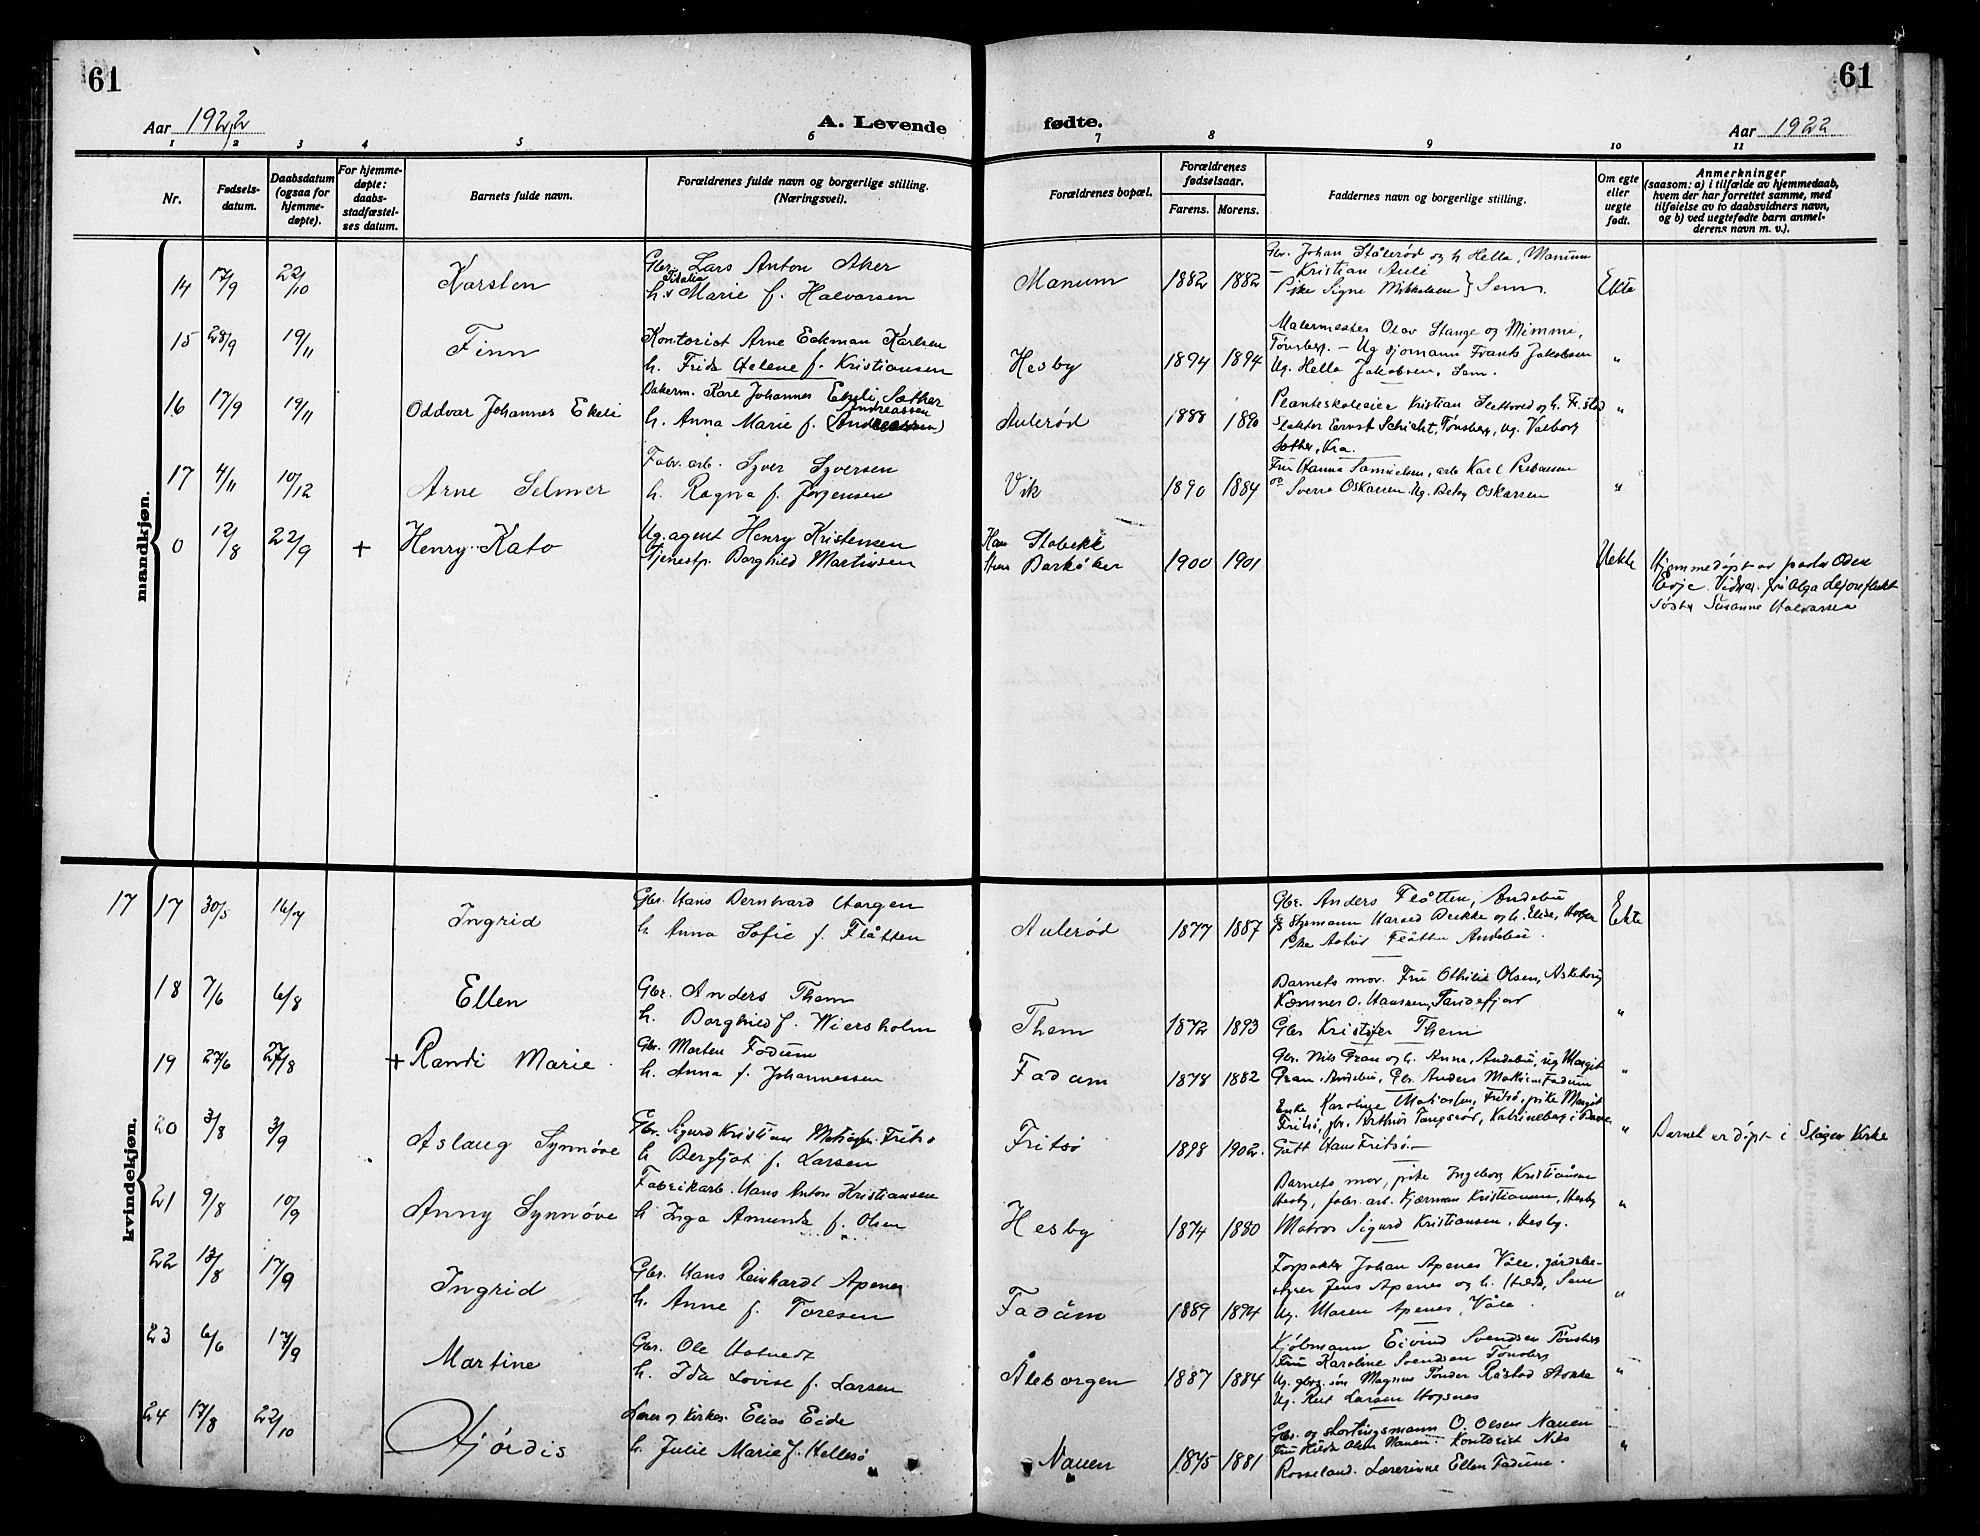 61
61
Aar 1922
A. Levende
fødte.
Aar 1922
1 2 3 4 5 6 7 8 9 10 11
Nr.
Fødsels-
datum.
Daabsdatum
(ogsaa for
hjemme-
døpte).
For hjemme-
døpte:
daabs-
stadfæstel-
ses datum.
Barnets fulde navn.
Forældrenes fulde navn og borgerlige stilling.
(Næringsvei).
Forældrenes bopæl.
Forældrenes
fødselsaar.
Farens. Morens.
Faddernes navn og borgerlige stilling.
Om egte
eller
uegte
født.
Anmerkninger
(saasom: a) i tilfælde av hjemmedaab,
hvem der har forrettet samme, med
tilføielse av to daabsvidners navn,
og b) ved uegtefødte barn anmel-
derens navn m. v.).
mandkjøn.
14 17/9 22/10 Karsten
Gbr. Lars Anton Aker
h. Marie f. Halvorsen
Manum 1882 1882
Gbr. Johan Stålerød og h Hella, Manum
— Kristian Auli
Pike Signe Mikkelsen } Sem.
Ekte
15 28/9 19/11 Finn
Kontorist Arne Eckman Karlsen
h. Frida Helene f. Kristiansen
Hesby 1894 1894
Malermester Olav Stange og Mimmi,
Tønsberg. — Ug sjømann Frants Jakobsen
Ug. Hella Jakobsen, Sem.
"
16 17/9 19/11 Oddvar Johannes Ekeli
Bakerm. Kare Johannes Ekeli Sæther
Andreassen
h. Anna Marie f. (Andreassen)
Aulerød 1888 1890
Planteskoleeier Kristian Slettvold og h. Fr.stad
Slakter Ernst Schicht, Tønsberg, Ug. Valborg
Sæther, Kra.
"
17 4/11 10/12 Arne Selmer
Fabr. arb. Syver Syversen
h. Ragna f. Jørgensen
Vik 1890 1884
Fru Hanna Samuelsen, arb Karl
og Sverre Oskarsen Ug. Betsy Oskarsen
"
0 12/8 22/9 + Henry Kato
Ug. agent Henry Kristensen
Tjenestp. Borghild Martinsen
Han Stabekk
Hun Barkåker
1900 1901 Uekte
Hjemmedøpt av pastor Oden
Evje. Vidner. frk Olga
søster Susanne Halvorsen
kvindekjøn.
17 17 30/5 16/7 Ingrid
Gbr. Hans Bernhard Horgen
h. Anna Sofie f. Flåtten
Aulerød 1877 1887
Gbr. Anders Flåtten, Andebu
Styrmann Harald Bekke og h. Elise, Horgen
Pike Astrid Flåtten Andebu.
Ekte
18 7/6 6/8 Ellen
Gbr. Anders Them
h. Borghild f. Wiersholm
Them 1872 1893
Barnets mor. Fru Othilie Olsen, Askehoug
Kæmner O. Hanssen, Sandefjord
Gbr Kristofer Them
"
19 27/6 27/8 + Randi Marie.
Gbr. Morten Fadum
h. Anna f. Johannessen
Fadum 1878 1882
Gbr. Nils Gran og h. Anna, Andebu, ug Margit
Gran. Andebu, Gbr. Anders Mathisen Fadum
"
20 3/8 3/9 Aslaug Synnøve
Gbr. Sigurd Kristian Mathiasen Fritsø
h Bergljot f. Larsen
Fritsø 1898 1902.
Enke Karoline Mathiasen, Fritsø, pike Margit
Fritsø, gbr. Arthur Tangsrød, Katrineberg i
Gutt Hans Fritsø.—
"
Barnet er døpt i Slagen Kirke
21 9/8 10/9 Anny Synnøve
Fabrikarb. Hans Anton Kristiansen
h Inga Amunda f. Olsen
Hesby 1874 1880
Barnets mor, pike Ingeborg Kristiansen
Hesby, fabr. arb. Hjerman Kristiansen, Hesby
Matros Sigurd Kristiansen, Hesby.
"
22 13/8 17/9 Ingrid
Gbr. Hans Reinhardt Apenes
h. Anne f. Toresen
Fadum 1889 1894
Forpakter Johan Apenes Våle, gårdsbe-
styrer Jens Apenes og h. Hilda, Sem
Ug. Maren Apenes, Våle.
"
23 6/6 17/9 Martine
Gbr. Ole Hotvedt
h. Ida Lovise f. Larsen
Åleborgen 1887 1884
Kjøbmann Eivind Svendsen Tønsberg
Fru Karoline Svendsen Tønsberg
Ug. gbrs. søn Magnus Tønder Råstad Stokke
Ug. Rut Larsen Hogsnes
"
24 17/8 22/10 Hjørdis
Lærer og kirkes. Elias Eide
h. Julie Marie f. Hellesø
Nauen 1875 1881
Gbr. og stortingsmann O. Olsen Nauen
Fru Hilda Olsen Nauen. Kontorist Nils
Rosseland. Lærerinne Ellen Fadum.
"